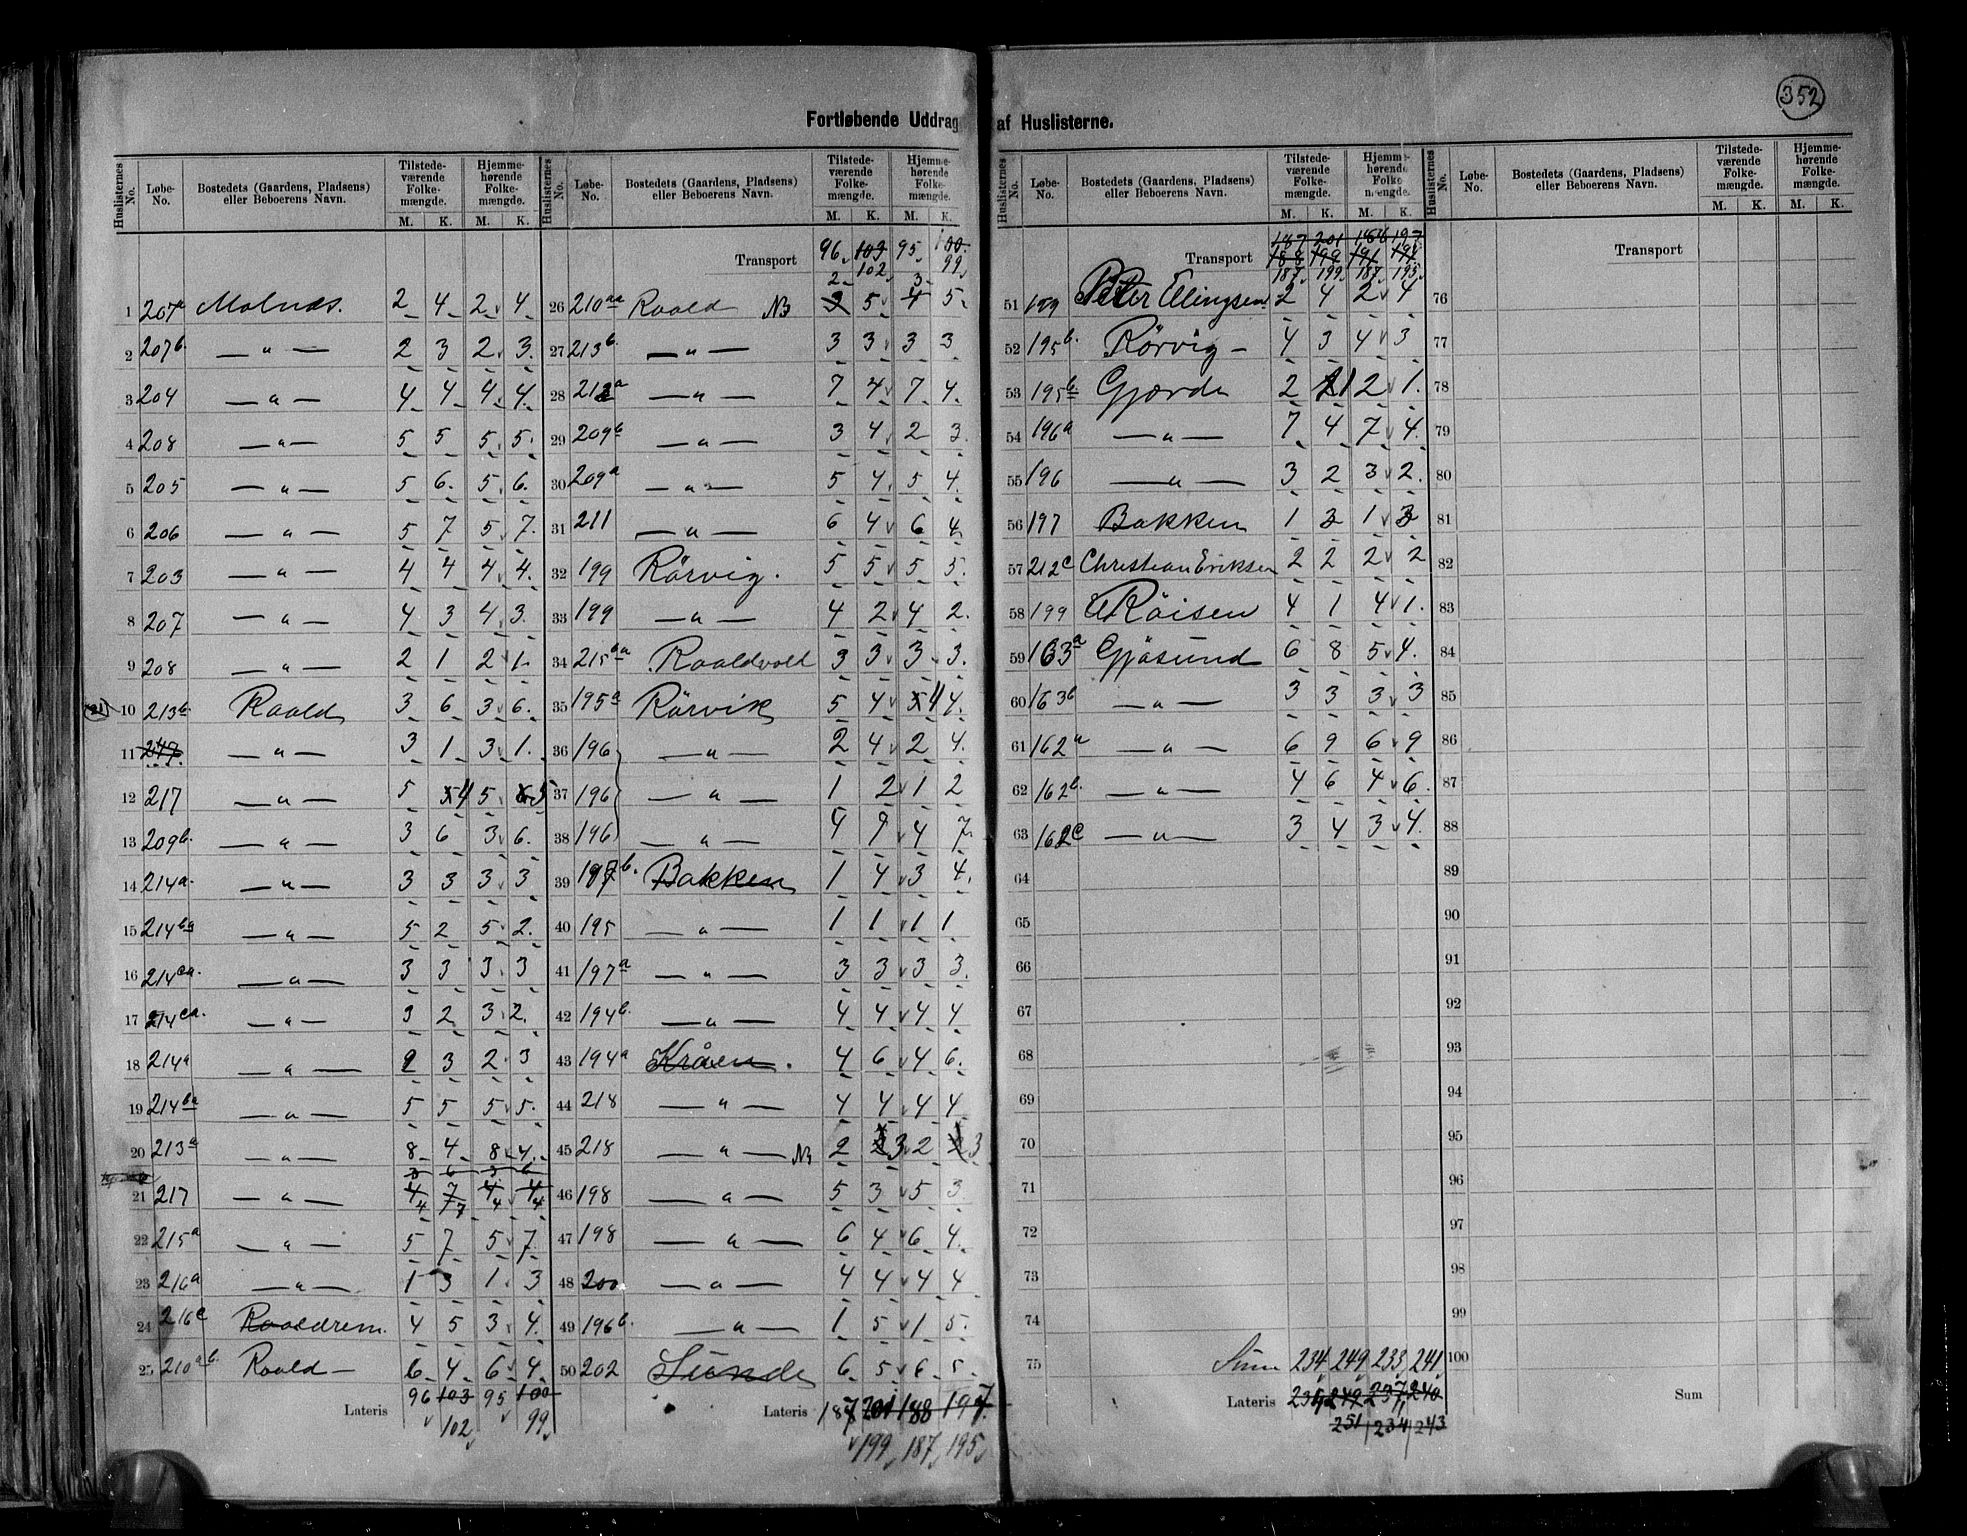 352
Fortløbende Uddrag af Huslisterne.
Huslisternes No. Løbe-No. Bostedets (Gaardens, Pladsens) eller Beboerens Navn. Tilstedeværende Folkemængde. M. K. Hjemmehørende Folkemængde. M. K.
1 207a Molnæs. 2 4 2 4
2 207b. — " — 2 3 2 3.
3 204 — " — 4 4 4 4.
4 208 — " — 5 5 5 5.
5 205 — " — 5 6. 5 6.
6 206 — " — 5 7 5 7.
7 203 — " — 4 4 4 4.
8 207 — " — 4 3 4 3.
9 208 — " — 2 1 2 1.
10 213b Roald 3 6 3 6.
11 217 — " — 3 1 3 1.
12 217 — " — 5 4 5 5
13 209b. — " — 3 6 3 6.
14 214a. — " — 3 3 3 3
15 214ba — " — 5 2 5 2.
16 214ca. — " — 3 3 3 3
17 214ca. — " — 3 2 3 2.
18 214a — " — 2 3 2 3
19 214ba — " — 5 5 5 5.
20 213a — " — 8 4 8 4.
21 217 — " — 4 7 4 4
22 215a — " — 5 7 5 7.
23 216a — " — 1 3 1 3
24 216c Roaldrem. 4 5 3 4.
25 210ab. Roald — 6 4 6 4.
Lateris 96 103 95 100
102 99
Huslisternes No. Løbe-No. Bostedets (Gaardens, Pladsens) eller Beboerens Navn. Tilstedeværende Folkemængde. M. K. Hjemmehørende Folkemængde. M. K.
Transport 96 103 95 100
102 99
2 3
26 210aa Roald NB 3 5 4 5.
27 213b. — " — 3 3 3 3
28 212a — " — 7 4 7 4.
29 209b — " — 3 4 2 3.
30 209a — " — 5 4 5 4.
31 211 — " — 6 4 6 4.
32 199 Rörvig. 5 5 5 5.
33 199 — " — 4 2 4 2.
34 215aa Roaldvold 3 3 3 3.
35 195a Rörvik 5 4 4 4.
36 196 — " — 2 4 2 4.
37 196 — " — 1 2 1 2
38 196 — " — 4 9 4 7.
39 197b. Bakken 1 4 3 4.
40 195 — " — 1 1 1 1
41 197a — " — 3 3 3 3.
42 194b. — " — 4 4 4 4
43 194a Kråen. 4 6 4 6.
44 218 — " — 4 4 4 4
45 218 — " — NB 2 3 2 3
46 198 — " — 5 3 5 3
47 198 — " — 6 4 6 4.
48 200 — " — 4 4 4 4
49 196b. — " — 1 5 1 5.
50 202 Sunde 6 5 6 5.
Lateris 187 201 188 197
199 187 195
Huslisternes No. Løbe-No. Bostedets (Gaardens, Pladsens) eller Beboerens Navn. Tilstedeværende Folkemængde. M. K. Hjemmehørende Folkemængde. M. K.
187 201 188 197
Transport
187 199 187 195
51 199 Peter Elingsen 2 4 2 4
52 195b. Rörvig — 4 3 4 3
53 195b. Gjærde 2 1 2 1.
54 196a — " — 7 4 7 4.
55 196 — " — 3 2 3 2.
56 197 Bakken 1 3 1 3
57 212c Christian Eriksen 2 2 2 2
58 199 Röisen 4 1 4 1.
59 163a Gjøsund 6 8 5 4.
60 163b — " — 3 3 3 3
61 162a — " — 6 9 6 9
62 162b. — " — 4 6 4 6.
63 162c — " — 3 4 3 4.
64
65
66
67
68
69
70
71
72
73
74
75
Sum 234 249 233 241
Lateris 234 249 237 240
251 234 243
Huslisternes No. Løbe-No. Bostedets (Gaardens, Pladsens) eller Beboerens Navn. Tilstedeværende Folkemængde. M. K. Hjemmehørende Folkemængde. M. K.
Transport
76
77
78
79
80
81
82
83
84
85
86
87
88
89
90
91
92
93
94
95
96
97
98
99
100
Sum